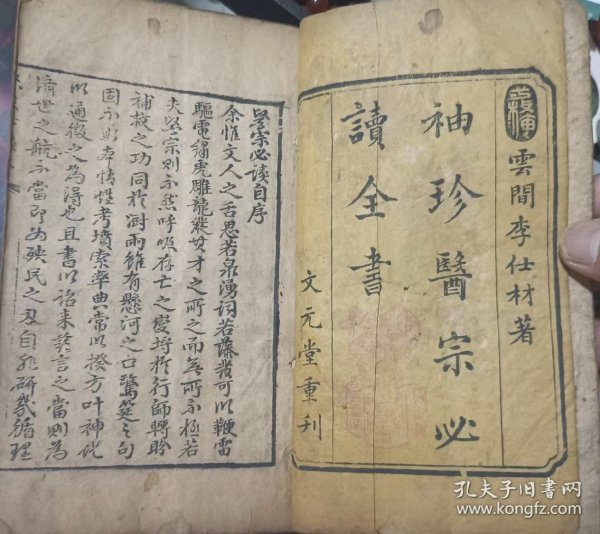 雲間李仕材著
袖珍醫宗必
讀全書
文元堂重刊
醫宗必讀自序
余惟文人之舌思若泉湧詞若藻發可以鞭雷
驅電繡虎雕龍縱其才之所之而無所不極若
夫醫宗則不然呼吸存亡之變埒於行師轉盼
補救之功同於澍雨雖有懸河之口驚筵之句
固不如本情性考墳索率典常以揆方叶神化
以通微之為得也且書以詒來茲言之當則為
濟世之航不當即為殃民之刃自非研幾循理
孔夫子旧书网
www.kongfz.com